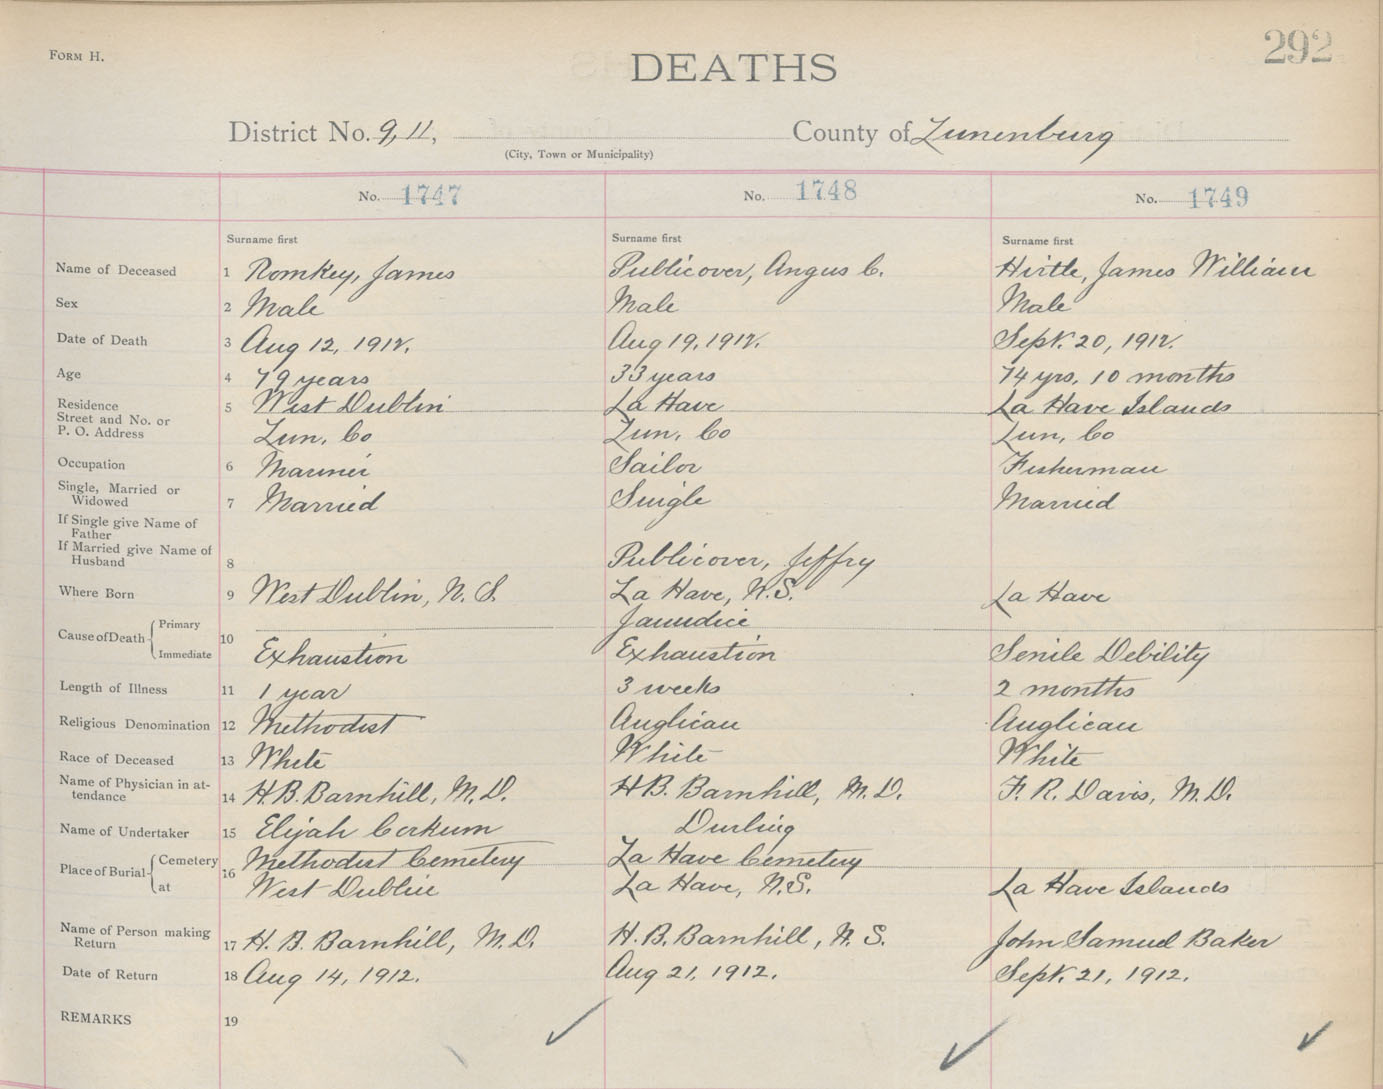 292
FORM H.
DEATHS
District No. 9, 11, County of Lunenburg
(City, Town or Municipality)
No. 1747 No. 1748 No. 1749
Surname first Surname first Surname first
Name of Deceased 1 Romkey, James Publicover, Angus C. Hirtle, James William
Sex 2 Male Male Male
Date of Death 3 Aug 12, 1912. Aug 19, 1912. Sept. 20, 1912.
Age 4 79 years 33 years 74 yrs, 10 months
Residence 5 West Dublin La Have La Have Islands
Street and No. or
P. O. Address Lun, Co Lun, Co Lun, Co
Occupation 6 Mariner Sailor Fisherman
Single, Married or
Widowed 7 Married Single Married
If Single give Name of
Father
If Married give Name of
Husband 8 Publicover, Jeffry
Where Born 9 West Dublin, N. S. La Have, N.S. La Have
Cause of Death Primary 10 Jaundice
Immediate Exhaustion Exhaustion Senile Debility
Length of Illness 11 1 year 3 weeks 2 months
Religious Denomination 12 Methodist Anglican Anglican
Race of Deceased 13 White White White
Name of Physician in at-
tendance 14 H. B. Barnhill, M. D. H B. Barnhill, M. D. F. R. Davis, M. D.
Name of Undertaker 15 Elijah Corkum Durling
Place of Burial Cemetery 16 Methodist Cemetery La Have Cemetery
at West Dublin La Have, N.S. La Have Islands
Name of Person making
Return 17 H. B. Barnhill, M. D. H. B. Barnhill, N. S. John Samuel Baker
Date of Return 18 Aug 14, 1912. Aug 21, 1912. Sept. 21, 1912.
REMARKS 19